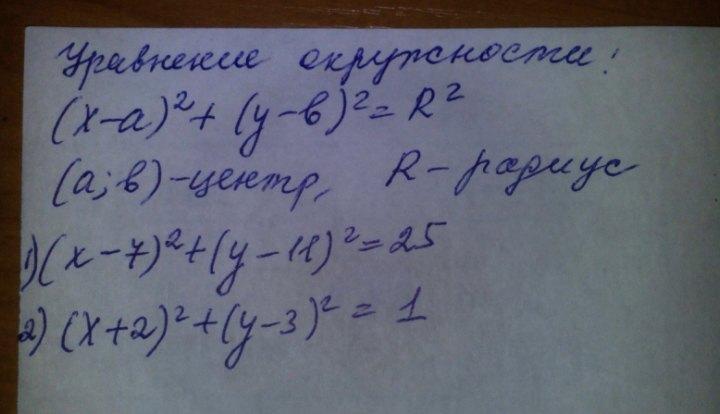 Уравнение окружности:
(x-a)²+(y-в)²=R²
(а;в)-центр, R-радиус
1)(x-7)²+(y-11)²=25
2)(x+2)²+(y-3)²=1